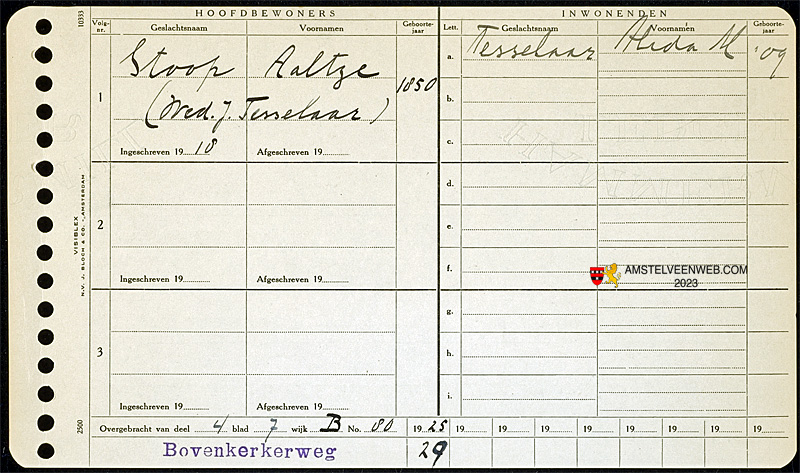 HOOFDBEWONERS
Volg-nr. Geslachtsnaam Voornamen Geboorte-jaar
1 Stoop Aaltze 1850
(Wed. J. Tesselaar)
Ingeschreven 19 18 Afgeschreven 19
2
Ingeschreven 19 Afgeschreven 19
3
Ingeschreven 19 Afgeschreven 19
INWONENDEN
Lett. Geslachtsnaam Voornamen Geboorte-jaar
a. Tesselaar Alida M '09
b.
c.
d.
e.
f.
g.
h.
i.
Overgebracht van deel 4 blad 7 wijk B No. 80 19 25 19 19 19 19 19 19 19 19
Bovenkerkerweg 29
10333
VISIBLEX
N.V. J. BLOCH & CO. - AMSTERDAM
2500
AMSTELVEENWEB.COM
2023